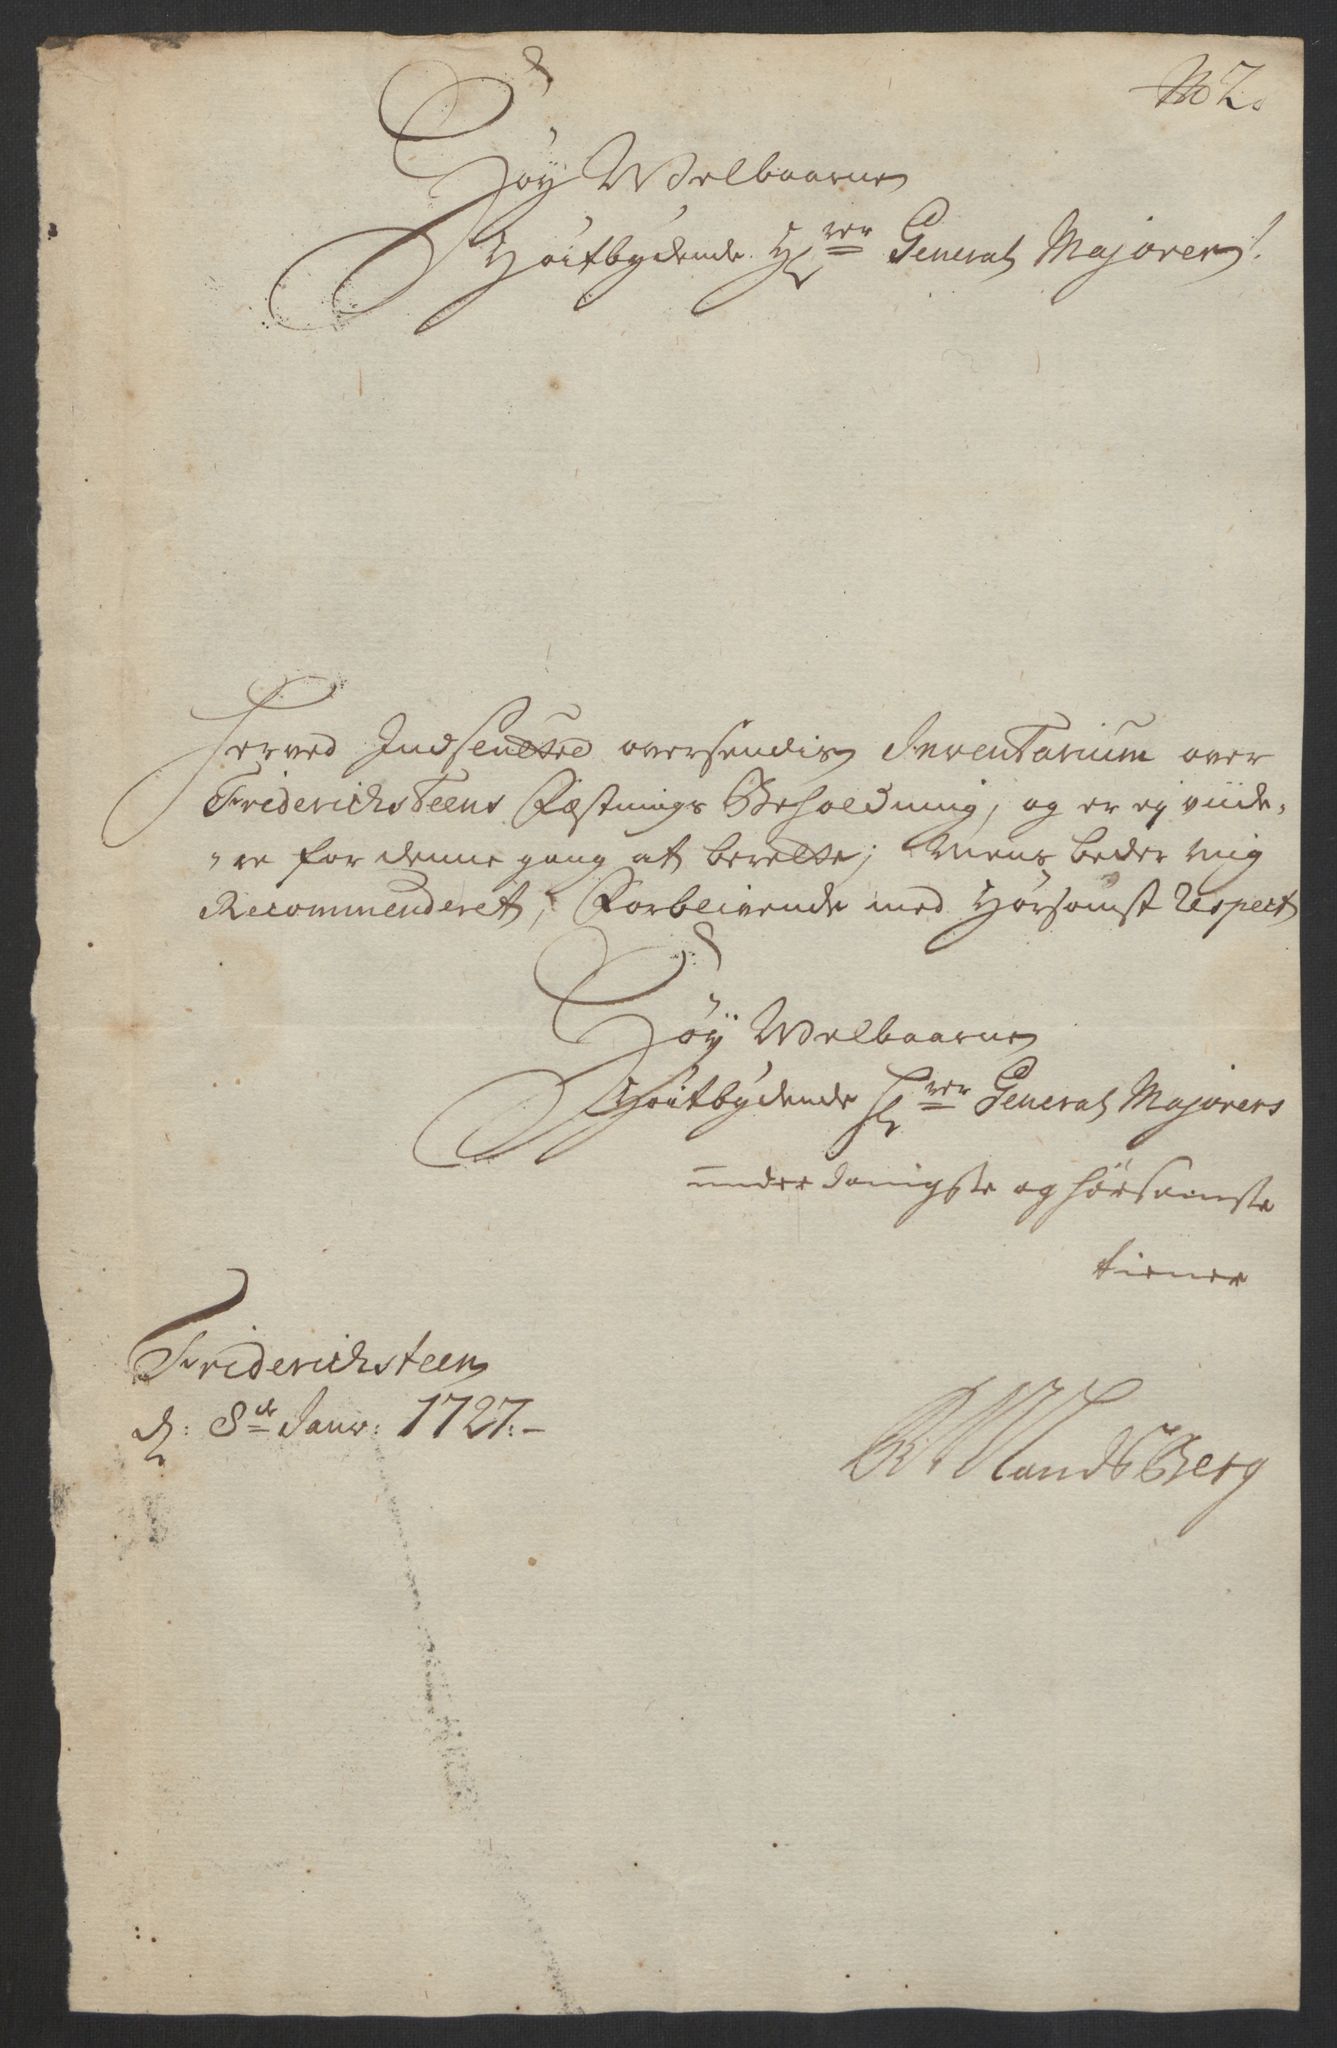 No 2.
Høy Welbaarne
Høitbydende Hrer General Majorer!
Herved Indslutted oversendis Inventarium over
Friderichsteens Fæstnings Beholdning, og er ej viide-
-re for denne gang at berette; Mens beder mig
Recommenderet, Forbeivende med Hörsomst Respect
Høÿ Welbaarne
Høitbydende Hrer General Majorers
underdanigste og hörsomste
tiener
Friderichsteen
d: 8de Janv: 1727.-
LandsBerg